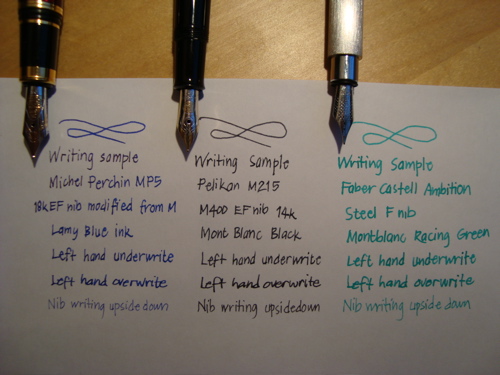 Writing sample
Michel Perchin MP5
18k EF nib modified from M
Lamy Blue ink
Left hand underwrite
Left hand overwrite
Nib writing upside down
Writing Sample
Pelikan M215
M400 EF nib 14k
Mont Blanc Black
Left hand underwrite
Left hand overwrite
Nib writing upsidedown
Writing Sample
Faber Castell Ambition
Steel F nib
Montblanc Racing Green
Left hand underwrite
Left hand overwrite
Nib writing upside down